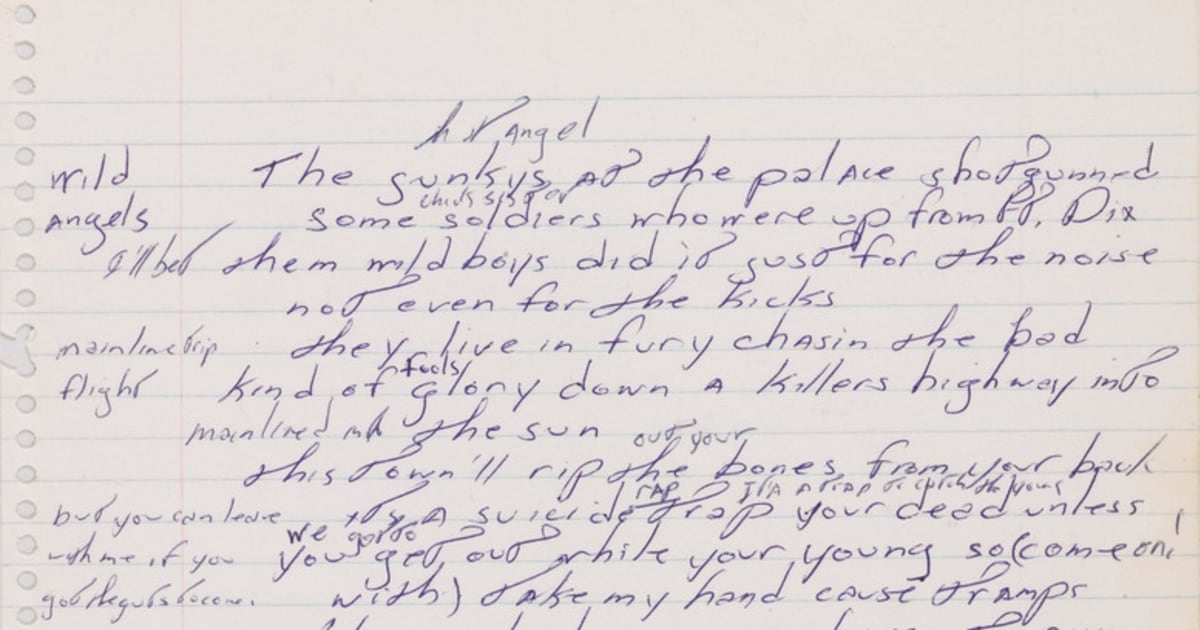 Angel
wild The gunkys at the palace shotgunned
chick's sister
Angels some soldiers who were up from Ft. Dix
I'll bet them wild boys did it just for the noise
not even for the kicks
mainline trip they live in fury chasin the bad
fools
flight kind of glory down a killers highway into
mainlined the sun
out your
this town'll rip the bones from your back
rap its a trap to catch the young
but you can leave its a suicide trap your dead unless
we gotta
with me if you you get out while your young so (come on
got the guts to come. with) take my hand cause tramps